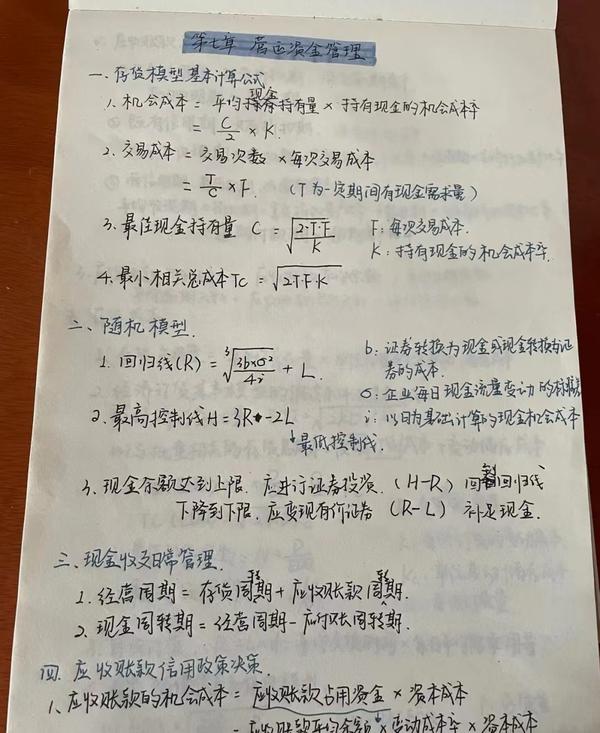 第七章 营运资金管理
一、存货模型基本计算公式
1. 机会成本 = 平均现金持有量 × 持有现金的机会成本率
= C/2 × K
2. 交易成本 = 交易次数 × 每次交易成本
= T/C × F. (T为一定期间有现金需求量)
3. 最佳现金持有量 C = √(2·T·F/K) F: 每次交易成本.
K: 持有现金的机会成本率.
4. 最小相关总成本TC = √(2T·F·K)
二、随机模型.
1. 回归线(R) = ³√(3b×σ²/4i) + L
b: 证券转换为现金或现金转换为证券的成本.
σ: 企业每日现金流量变动的标准差
i: 以日为基础计算的现金机会成本
2. 最高控制线H = 3R-2L
↓最低控制线.
3. 现金余额达到上限. 应进行证券投资. (H-R) 回到回归线
下降到下限. 应变现有价证券 (R-L) 补足现金.
三、现金收支日常管理.
1. 经营周期 = 存货周转期 + 应收账款周转期.
2. 现金周转期 = 经营周期 - 应付账周转期.
四. 应收账款信用政策决策.
1、应收账款的机会成本 = 应收账款占用资金 × 资本成本
= 应收账款平均余额 × 变动成本率 × 资本成本